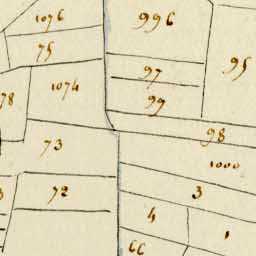 1076
996
75
95
97
1074
78
99
98
73
1000
3
72
3
4
1